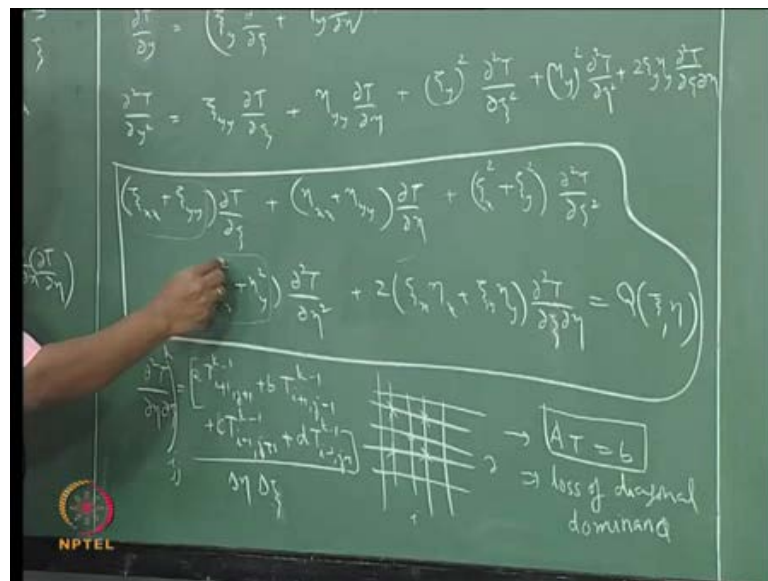 ∂T/∂y = (ξ_y ∂/∂ξ +
∂²T/∂y² = ξ_yy ∂T/∂ξ + η_yy ∂T/∂η + (ξ_y)² ∂²T/∂ξ² + (η_y)² ∂²T/∂η² + 2ξ_y η_y ∂²T/∂ξ∂η
(ξ_xx + ξ_yy) ∂T/∂ξ + (η_xx + η_yy) ∂T/∂η + (ξ_x² + ξ_y²) ∂²T/∂ξ²
+ η_y²) ∂²T/∂η² + 2(ξ_x η_x + ξ_y η_y) ∂²T/∂ξ∂η = Q(ξ, η)
= [a T^{k-1}_{i+1,j+1} + b T^{k-1}_{i+1,j-1}
+ c T^{k-1}_{i-1,j+1} + d T^{k-1}_{i-1,j-1}]
Δη Δξ
→ AT = b
⇒ loss of diagonal
dominance
NPTEL